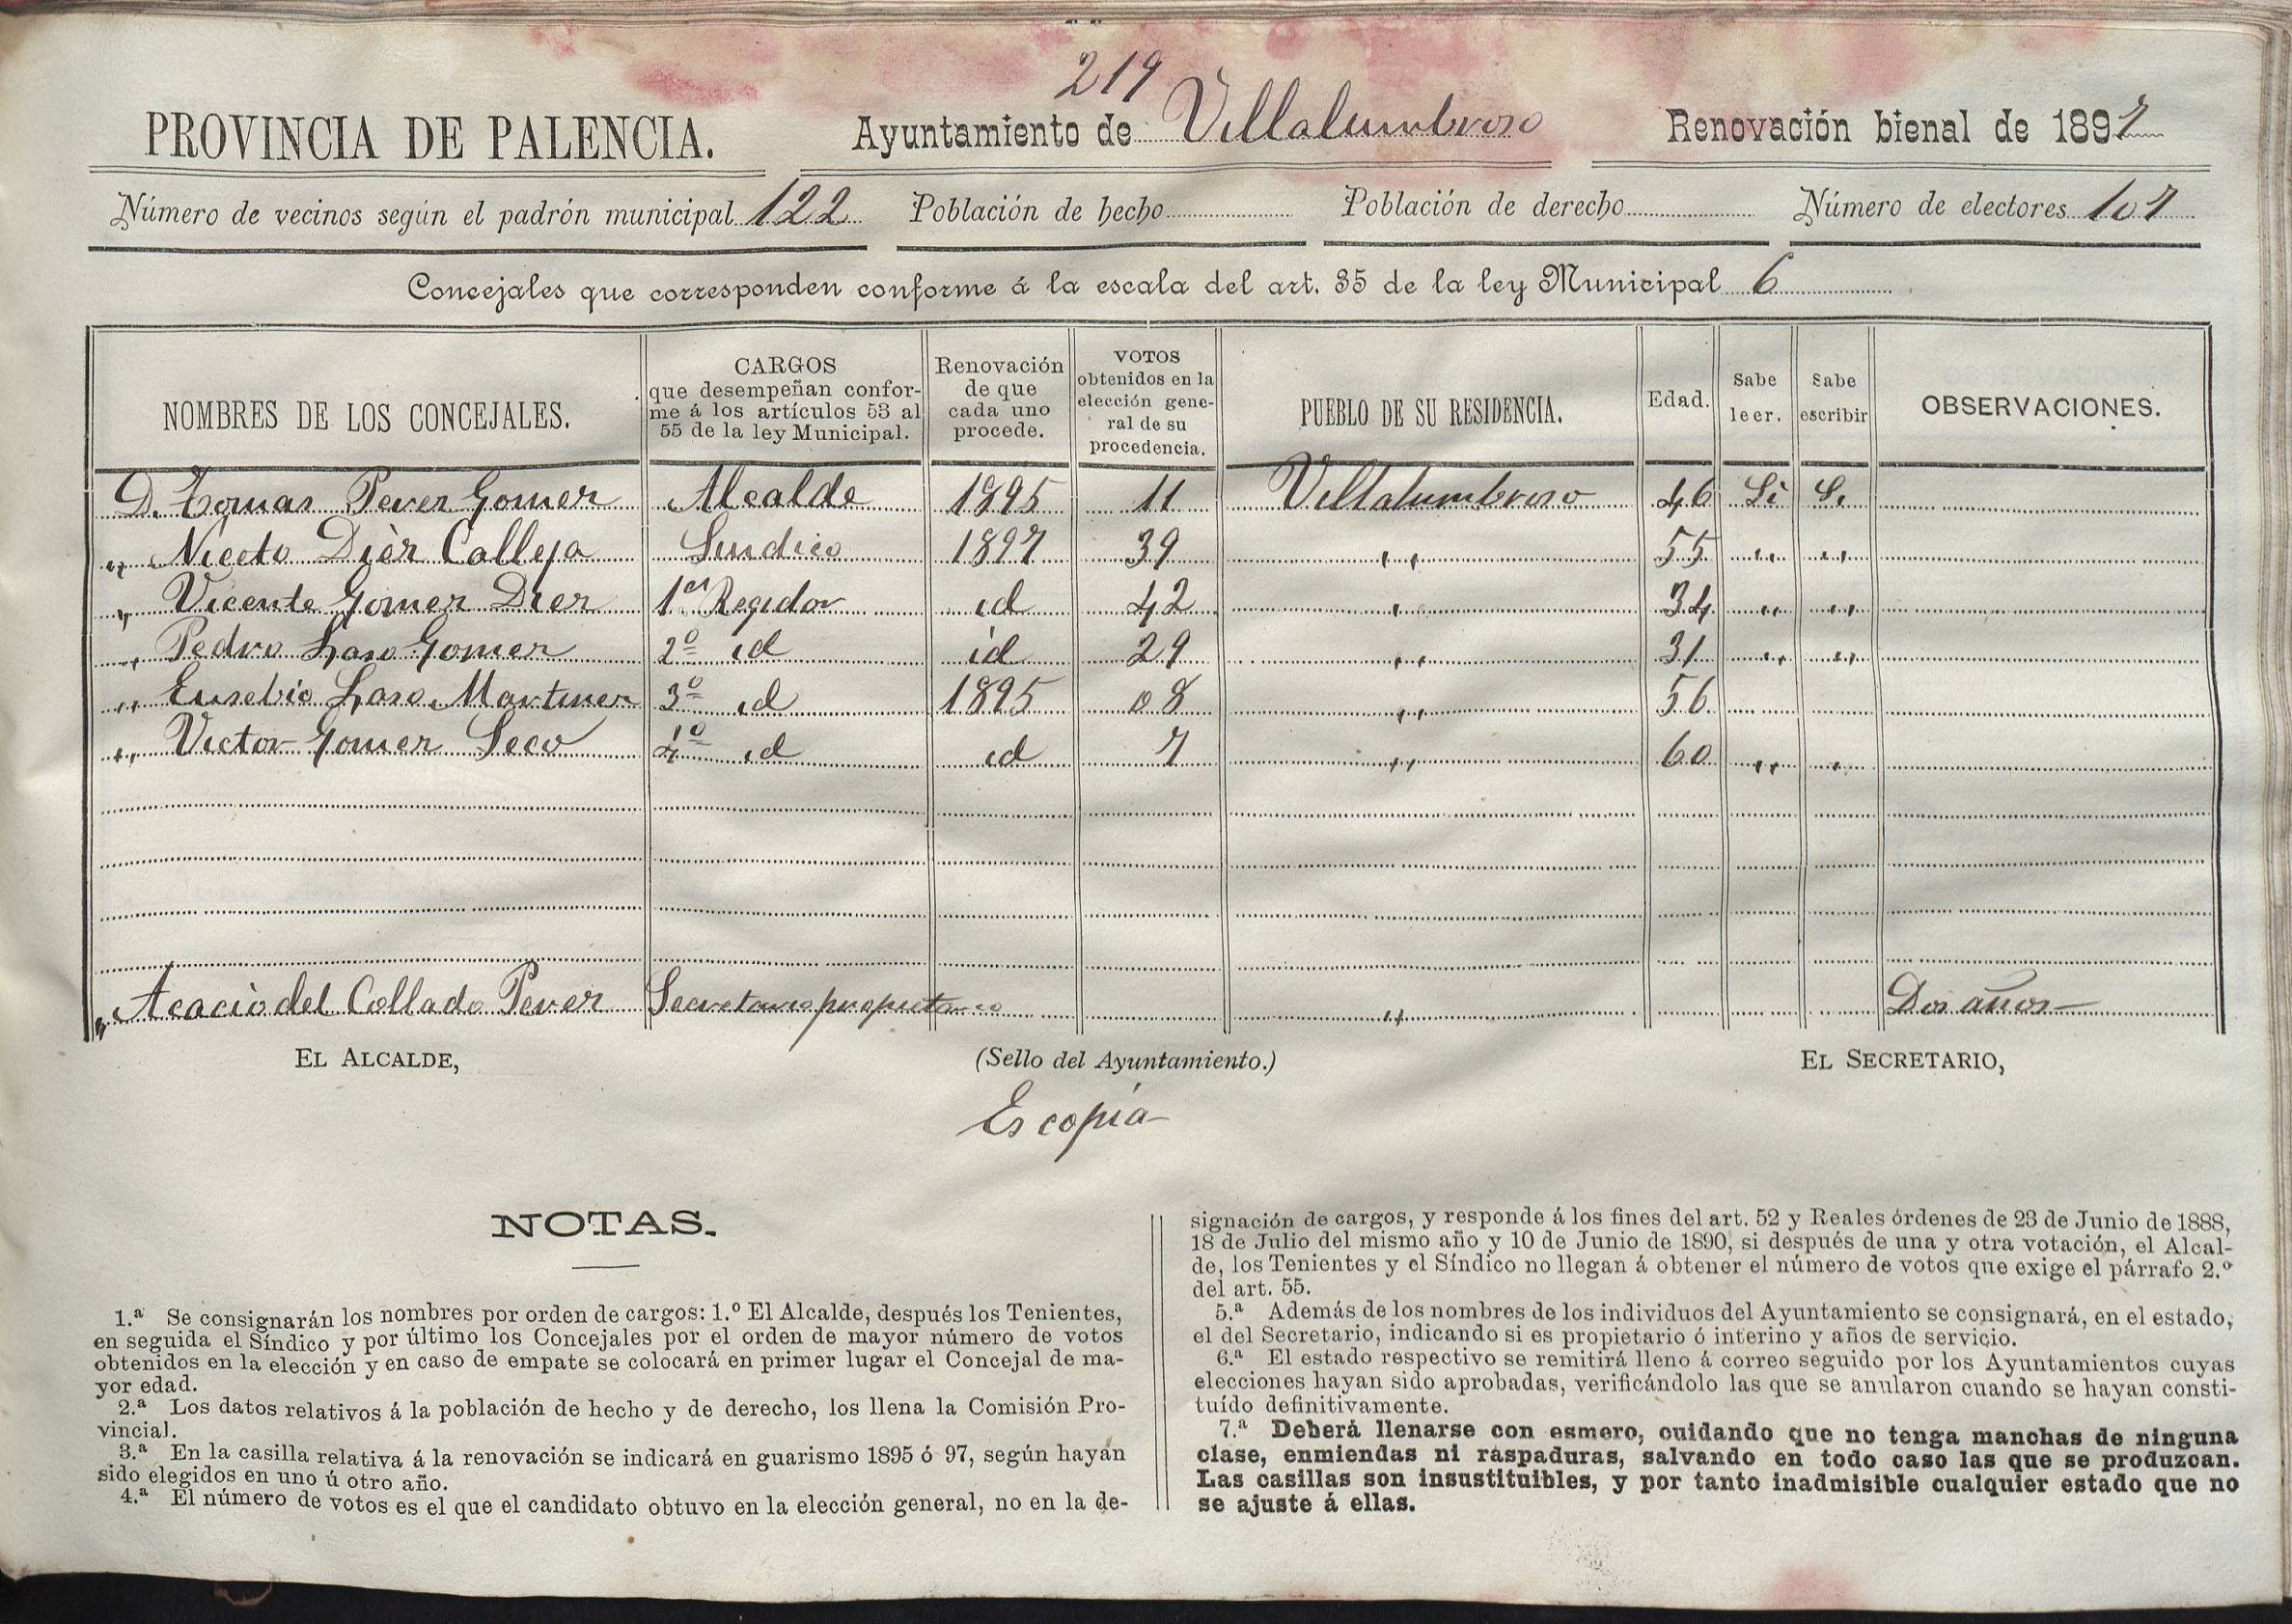 219
PROVINCIA DE PALENCIA. Ayuntamiento de Villalumbroso Renovación bienal de 1897
Número de vecinos según el padrón municipal 122 Población de hecho Población de derecho Número de electores 107
Concejales que corresponden conforme á la escala del art. 35 de la ley Municipal 6
NOMBRES DE LOS CONCEJALES. CARGOS que desempeñan conforme á los artículos 53 al 55 de la ley Municipal. Renovación de que cada uno procede. VOTOS obtenidos en la elección general de su procedencia. PUEBLO DE SU RESIDENCIA. Edad. Sabe leer. Sabe escribir OBSERVACIONES.
D. Tomas Perez Gomez Alcalde 1895 11 Villalumbroso 46 Si Si
„ Niceto Dièz Calleja Sindico 1897 39 „ 55 „ „
„ Vicente Gomez Diez 1er Regidor id 42 „ 34 „ „
„ Pedro Laso Gomez 2º id id 29 „ 31 „ „
„ Eusebio Laso Martinez 3º id 1895 08 „ 56
„ Victor Gomez Seco 4º id id 7 „ 60 „ „
„ Acacio del Collado Perez Secretario propietario „ Dos años
EL ALCALDE, (Sello del Ayuntamiento.) EL SECRETARIO,
Es copia
NOTAS.
1.ª Se consignarán los nombres por orden de cargos: 1.º El Alcalde, después los Tenientes,
en seguida el Síndico y por último los Concejales por el orden de mayor número de votos
obtenidos en la elección y en caso de empate se colocará en primer lugar el Concejal de ma-
yor edad.
2.ª Los datos relativos á la población de hecho y de derecho, los llena la Comisión Pro-
vincial.
3.ª En la casilla relativa á la renovación se indicará en guarismo 1895 ó 97, según hayan
sido elegidos en uno ú otro año.
4.ª El número de votos es el que el candidato obtuvo en la elección general, no en la de-
signación de cargos, y responde á los fines del art. 52 y Reales órdenes de 23 de Junio de 1888,
18 de Julio del mismo año y 10 de Junio de 1890, si después de una y otra votación, el Alcal-
de, los Tenientes y el Síndico no llegan á obtener el número de votos que exige el párrafo 2.º
del art. 55.
5.ª Además de los nombres de los individuos del Ayuntamiento se consignará, en el estado,
el del Secretario, indicando si es propietario ó interino y años de servicio.
6.ª El estado respectivo se remitirá lleno á correo seguido por los Ayuntamientos cuyas
elecciones hayan sido aprobadas, verificándolo las que se anularon cuando se hayan consti-
tuído definitivamente.
7.ª Deberá llenarse con esmero, cuidando que no tenga manchas de ninguna
clase, enmiendas ni raspaduras, salvando en todo caso las que se produzcan.
Las casillas son insustituibles, y por tanto inadmisible cualquier estado que no
se ajuste á ellas.